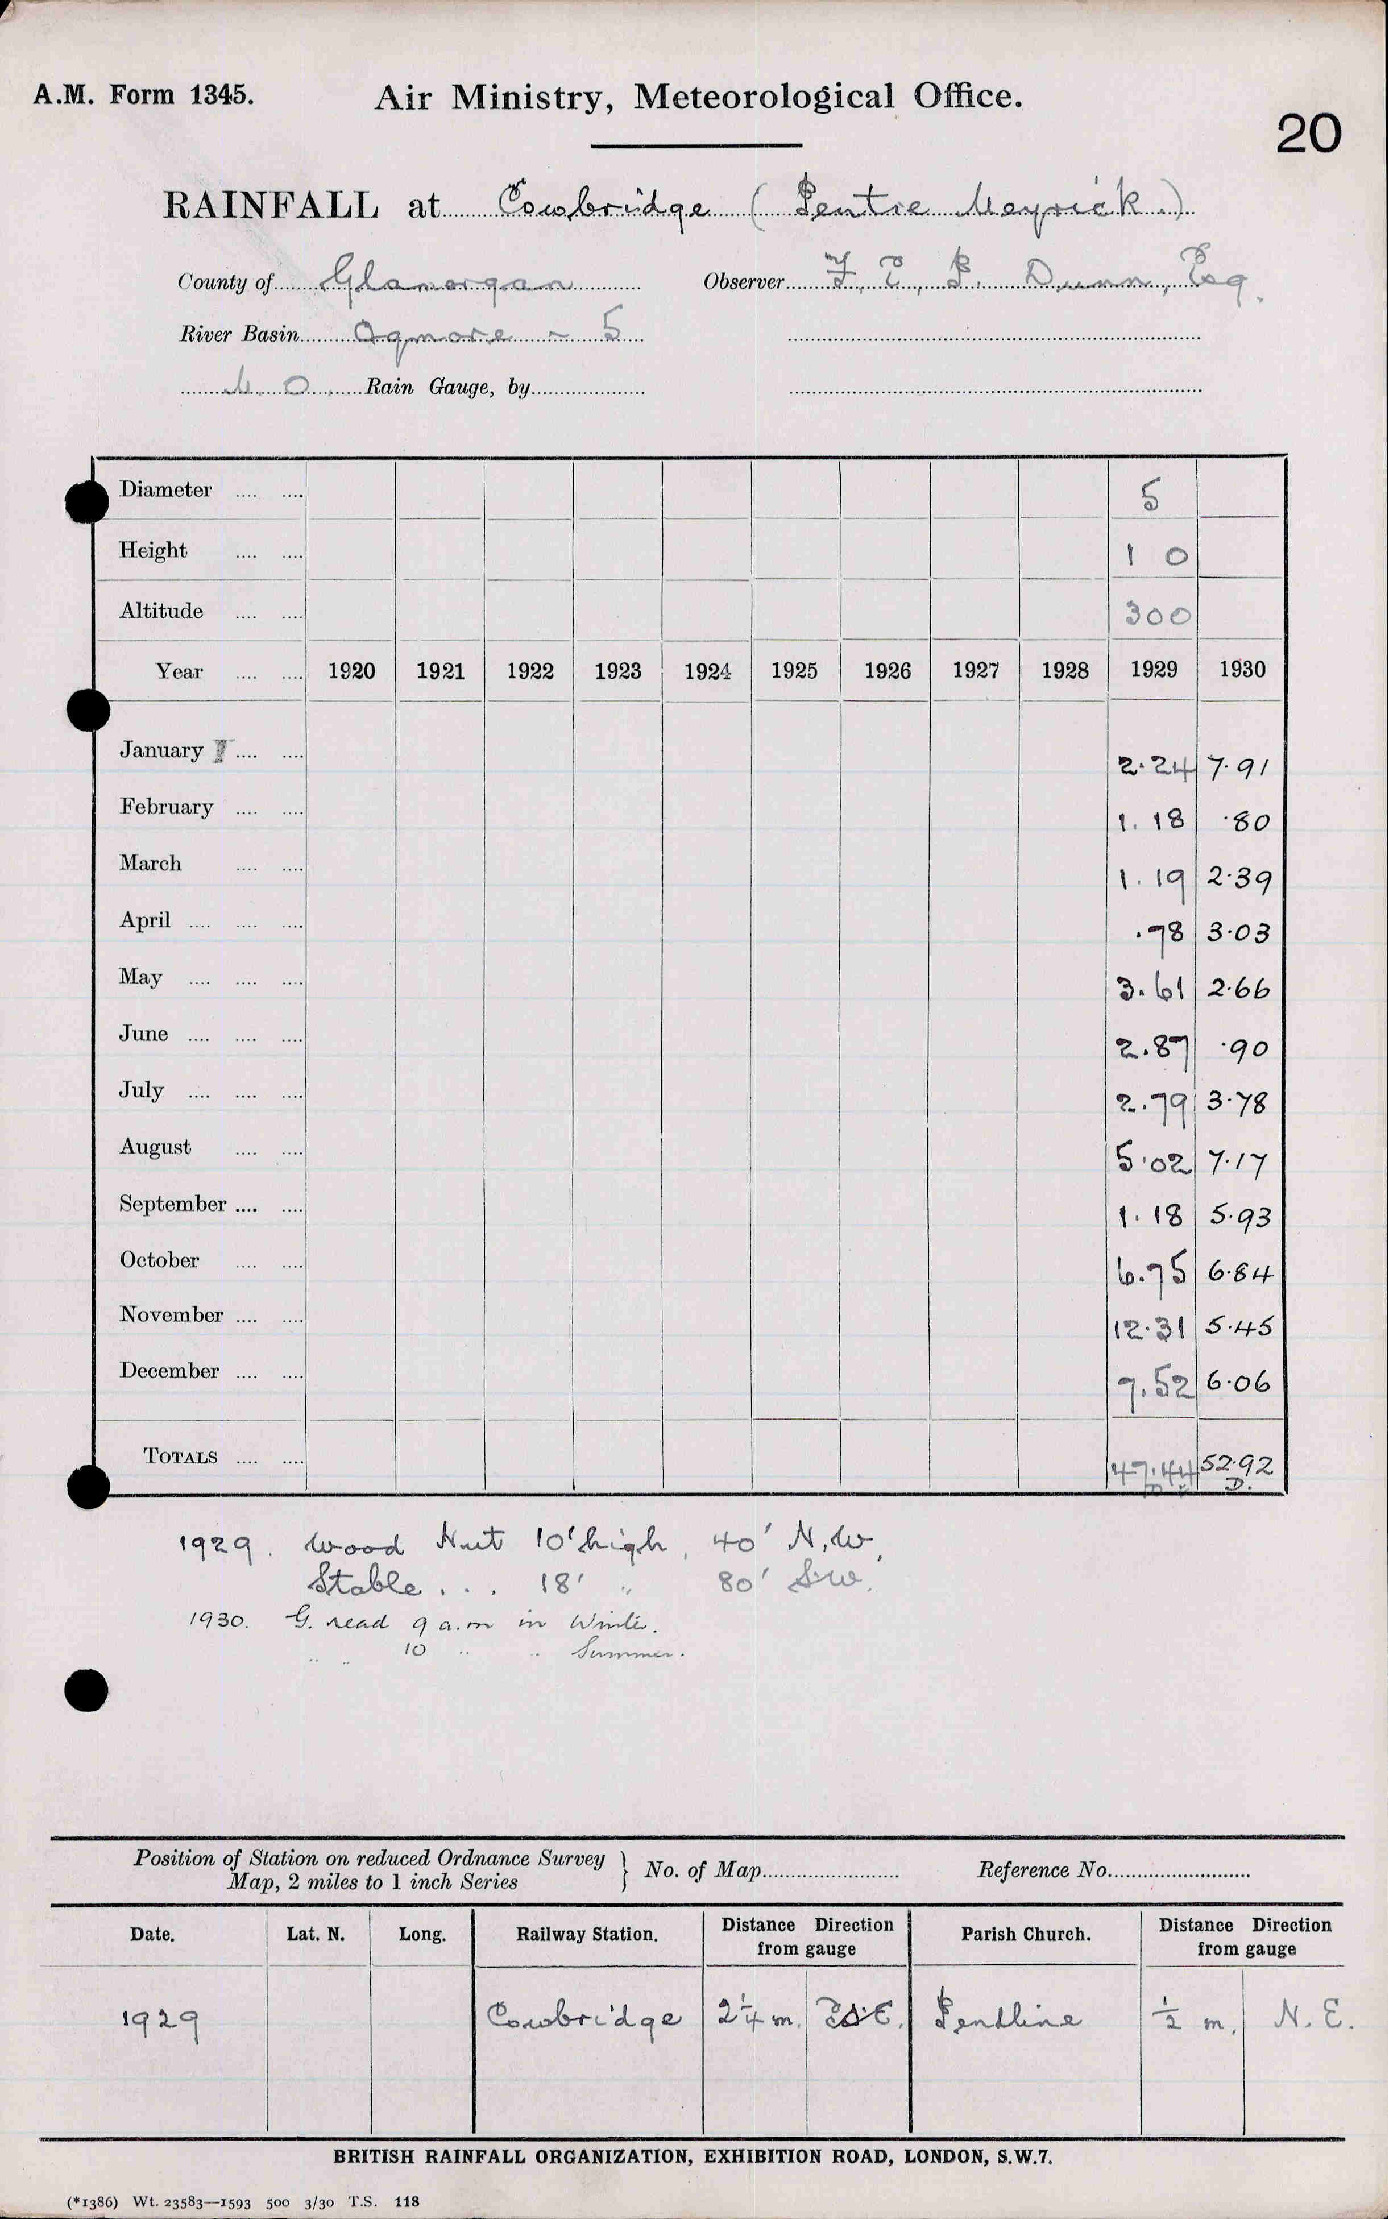 A.M. Form 1345.
Air Ministry, Meteorological Office.
20
RAINFALL at Cowbridge (Pentre Meyrick.)
County of Glamorgan Observer F. T. P. Dunn, Esq.
River Basin Ogmore - 5
M. O. Rain Gauge, by
Diameter 5
Height 1 0
Altitude 300
Year 1920 1921 1922 1923 1924 1925 1926 1927 1928 1929 1930
January 2.24 7.91
February 1.18 .80
March 1.19 2.39
April .78 3.03
May 3.61 2.66
June 2.87 .90
July 2.79 3.78
August 5.02 7.17
September 1.18 5.93
October 6.75 6.84
November 12.31 5.45
December 7.52 6.06
TOTALS 47.44 52.92
D.
1929. Wood Hut 10' high, 40' N.W.
Stable ... 18' " 80' S.W.
1930. G. read 9 a.m in Winter.
" " 10 " " Summer.
Position of Station on reduced Ordnance Survey
Map, 2 miles to 1 inch Series } No. of Map Reference No.
Date. Lat. N. Long. Railway Station. Distance Direction from gauge Parish Church. Distance Direction from gauge
1929 Cowbridge 2 1/4 m. Penlline 1/2 m. N. E.
BRITISH RAINFALL ORGANIZATION, EXHIBITION ROAD, LONDON, S.W.7.
(*1386) Wt. 23583—1593 500 3/30 T.S. 118